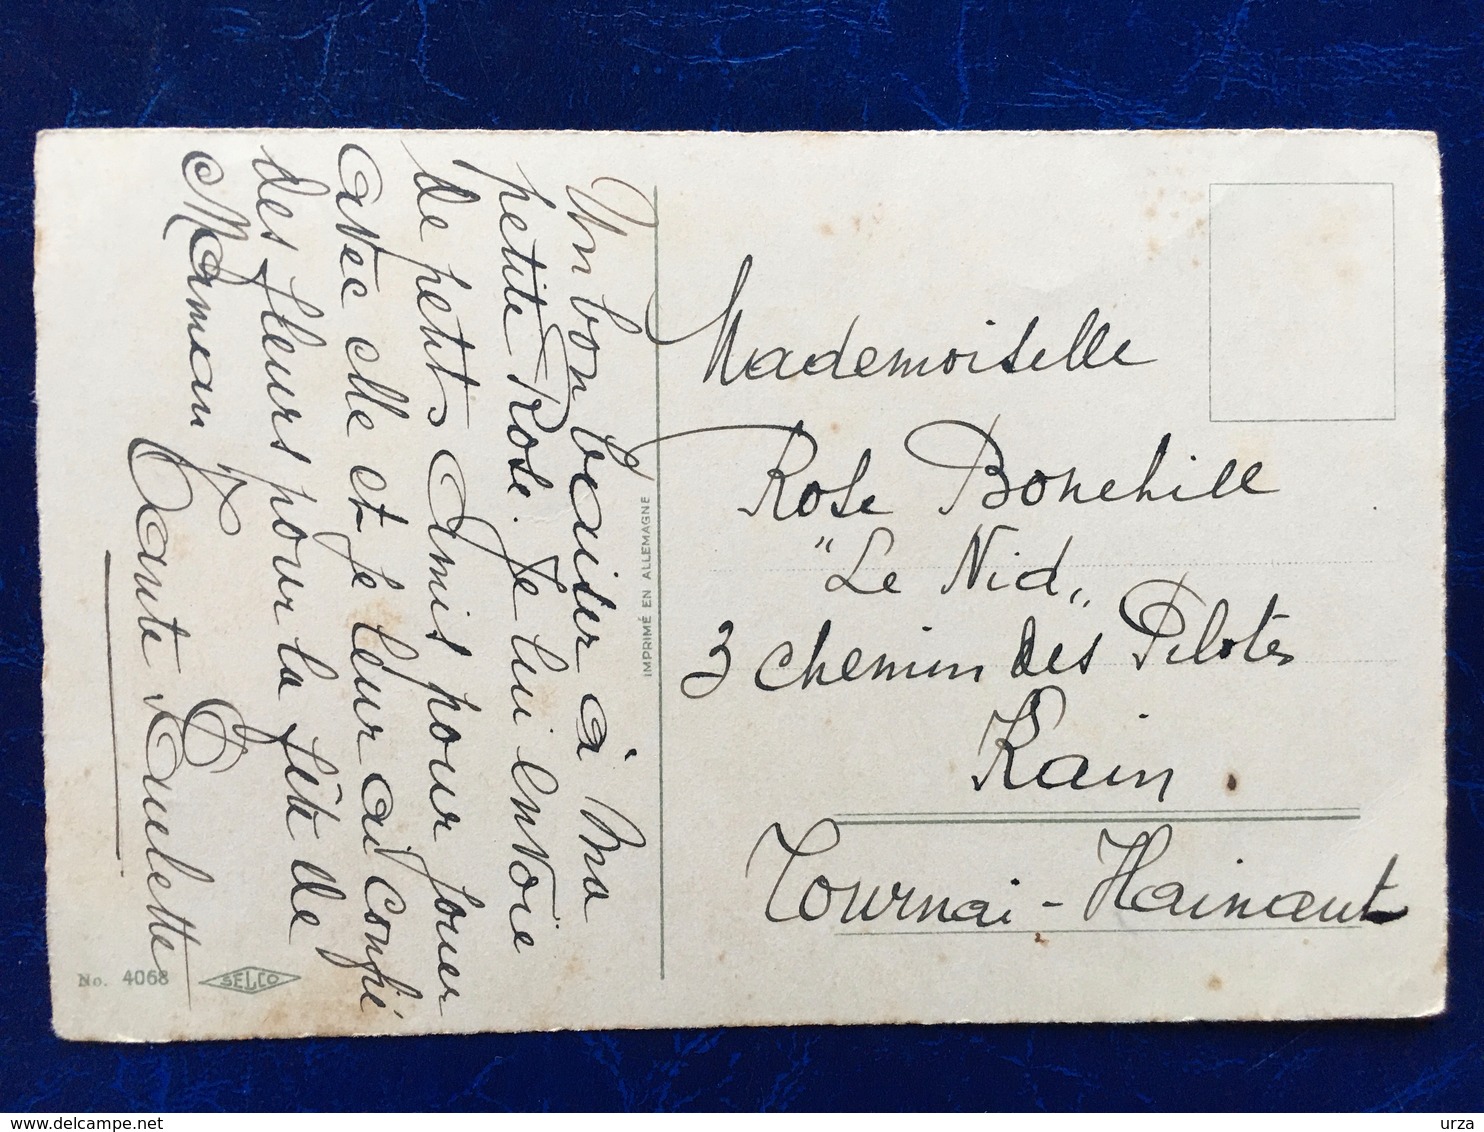 Un bon baiser à ma
petite Rose. Je lui envoie
de petits amis pour jouer
avec elle et je leur ai confié
des fleurs pour la fête de
Maman
Tante Paulette
IMPRIMÉ EN ALLEMAGNE
Mademoiselle
Rose Bonehill
"Le Nid"
3 chemin des Pilotes
Kain.
Tournai - Hainaut
No. 4068 SELCO
delcampe.net
urza